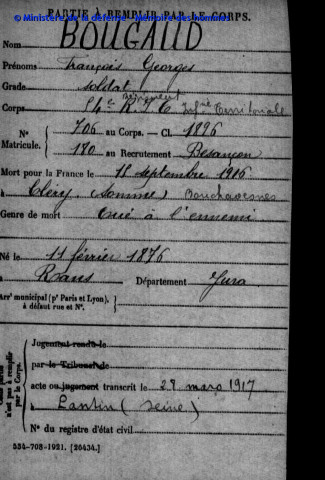 © Ministère de la défense - Mémoire des hommes
PARTIE À REMPLIR PAR LE CORPS.
Nom BOUGAUD
Prénoms François Georges
Grade soldat
Régiment
Corps 54e R I T Infrie Territoriale
N° 706 au Corps. — Cl. 1896
Matricule. 180 au Recrutement Besançon
Mort pour la France le 18 septembre 1916
à Cléry (Somme) Bouchavesnes
Genre de mort tué à l'ennemi
Né le 11 février 1876
à Rans Département Jura
Arrt municipal (pr Paris et Lyon),
à défaut rue et N°.
Cette partie
n'est pas à remplir
par le Corps.
Jugement rendu le
par le Tribunal de
acte ou jugement transcrit le 29 mars 1917
à Pantin (Seine)
N° du registre d'état civil
554-708-1921. [26434.]